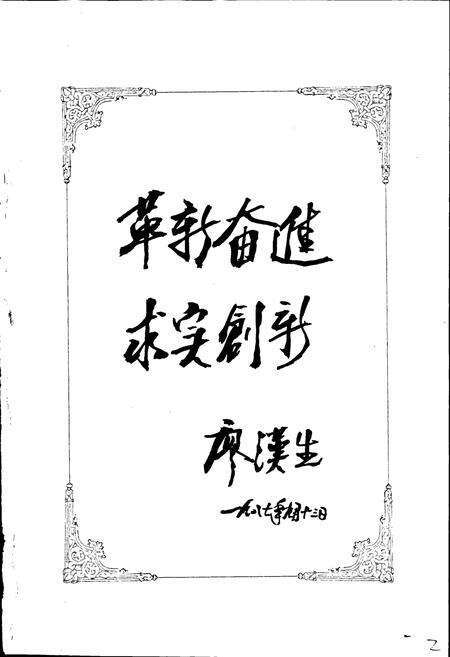 革新奋進
求实創新
廖漢生
一九八七年九月十二日
2